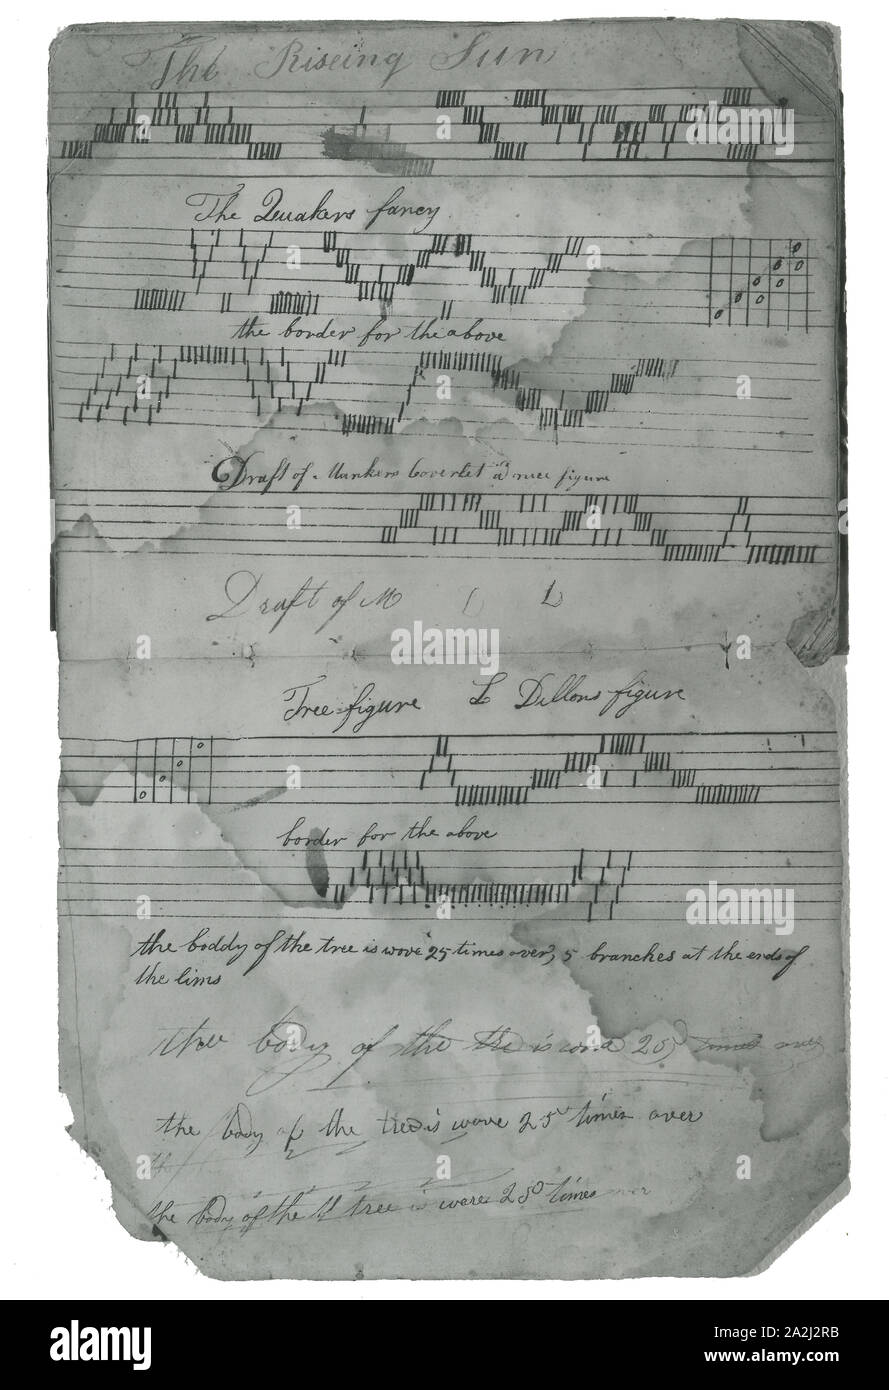 The Riseing Sun
The Quakers fancy
the border for the above
Draft of Coverlet a nice figure
Draft of M L L
Tree figure L Dillons figure
border for the above
the boddy of the tree is wove 25 times over, 5 branches at the ends of
the lims
the body of the the is wove 25 times over
the body of the tree is wove 25 times over
the
the body of the tree is were 25 times over
alamy
alamy
alamy
alamy
alamy
Image ID: 2A2J2RB
www.alamy.com